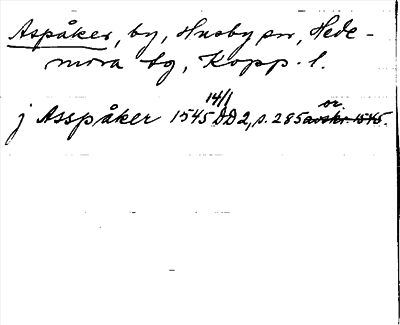 Aspåker, by, Husby sn, Hede-
mora tg, Kopp. l.
14/1 or.
j Asspåker 1545 DD 2, s. 285 avskr. 1545.